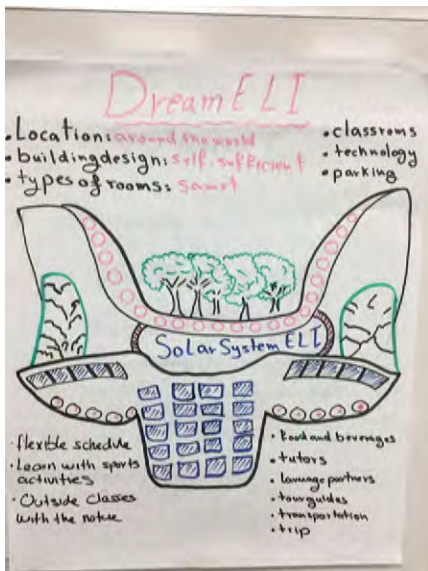 Dream ELI
• Location: around the world
• building design: self. sufficient
• types of rooms:
• classroms
• technology
• parking
Solar System ELI
• flexible schedule
• Learn with sports
activities
• Outside classes
with the nature
• food and beverages
• tutors
• lanuage partners
• tourguides
• transportation
• trip